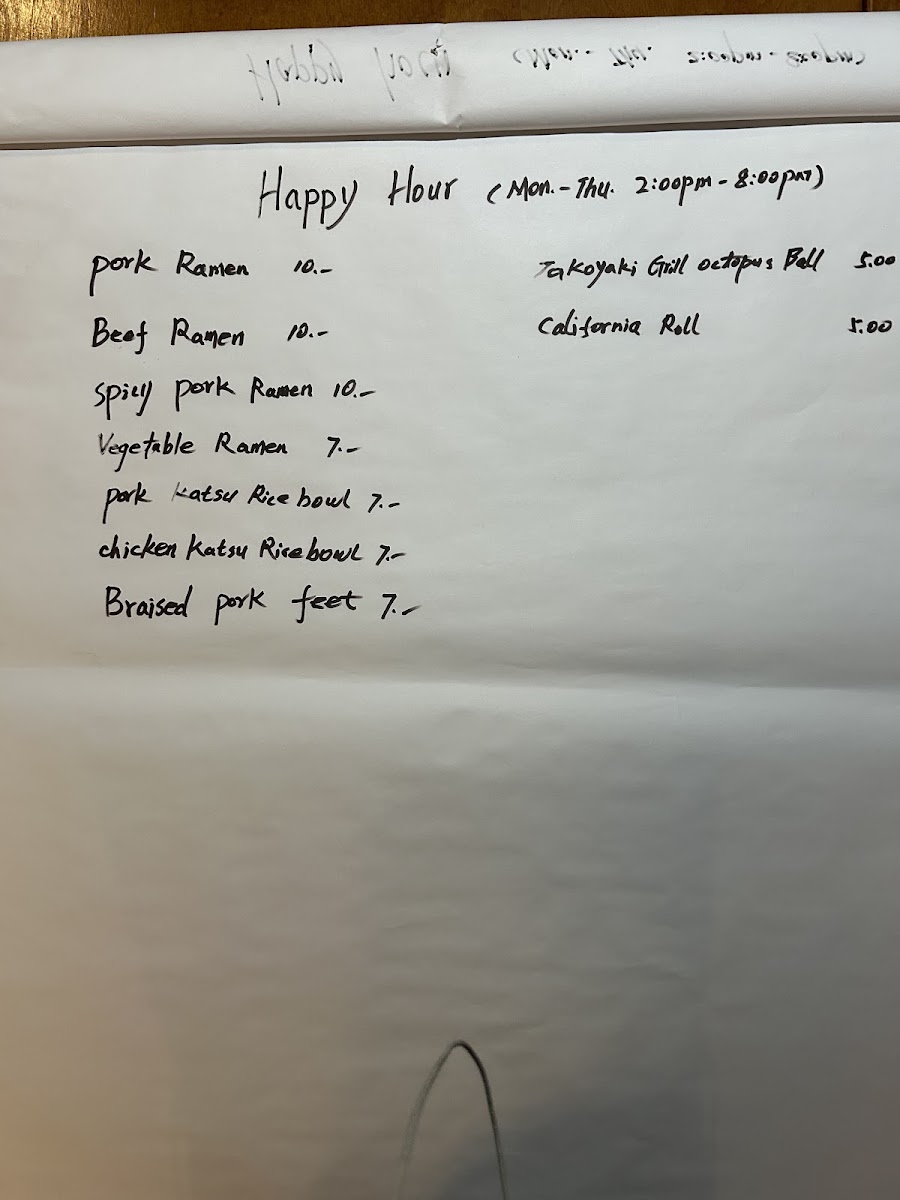 Happy Hour (Mon.-Thu. 2:00pm-8:00pm)
pork Ramen 10.-
Beef Ramen 10.-
Spicy pork Ramen 10.-
Vegetable Ramen 7.-
pork Katsu Rice bowl 7.-
chicken Katsu Rice bowl 7.-
Braised pork feet 7.-
Takoyaki Grill octopus Ball 5.00
California Roll 5.00